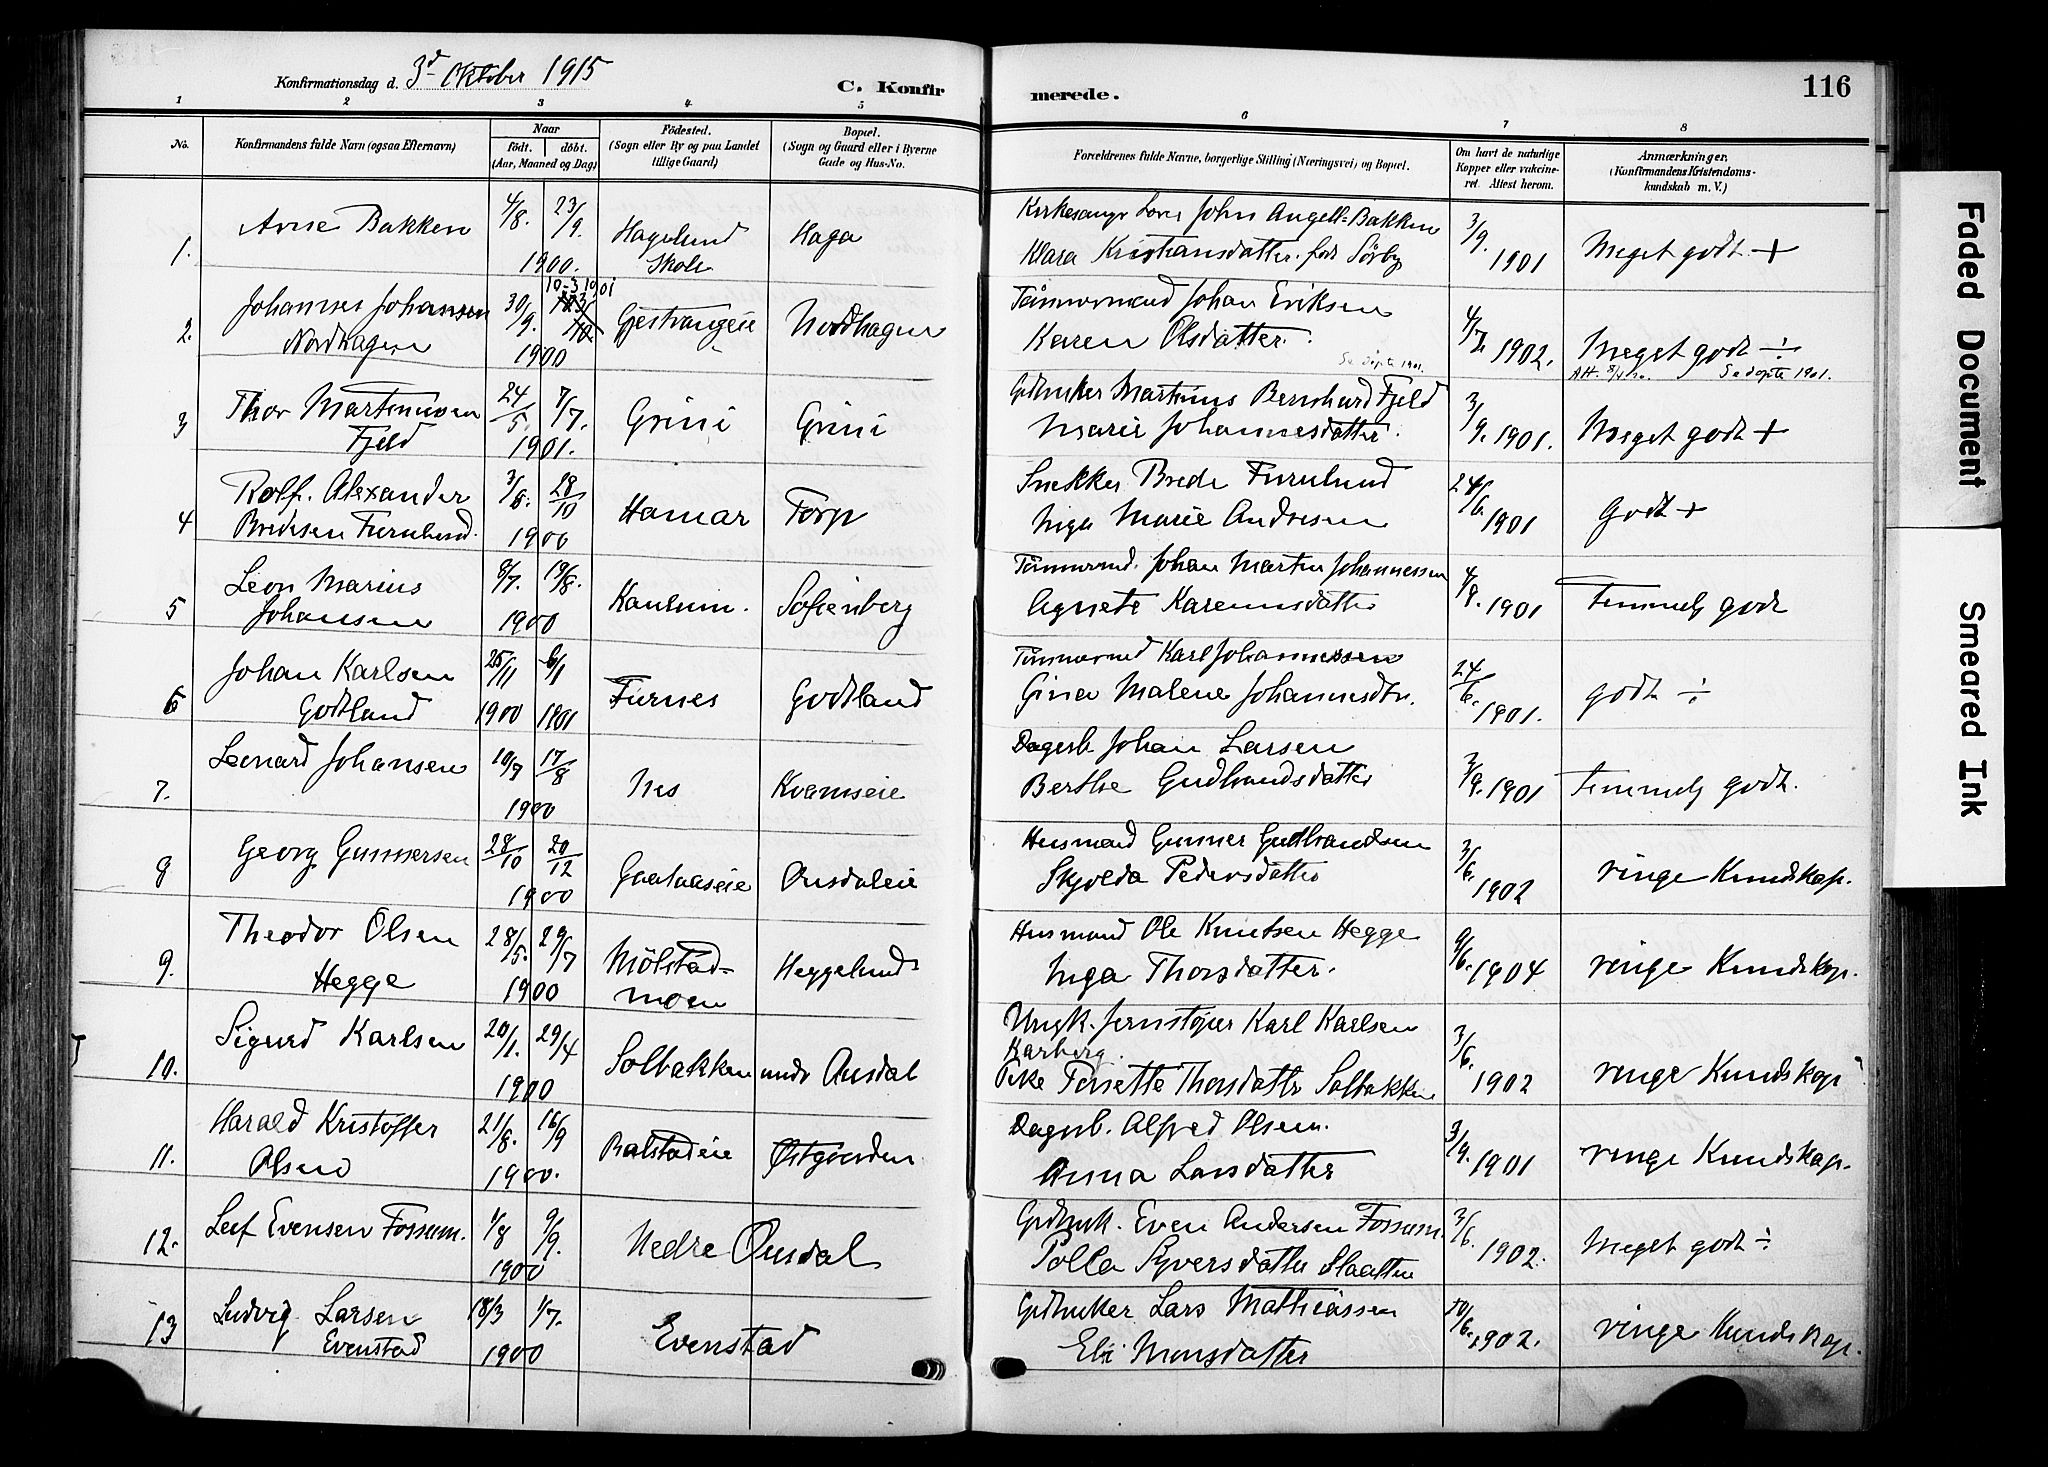 Konfirmationsdag d. 3d Oktober 1915
C. Konfirmerede.
116
1 2 3 4 5 6 7 8
No.
Konfirmandens fulde Navn (ogsaa Efternavn)
Naar
födt. döbt.
(Aar, Maaned og Dag)
Födested.
(Sogn eller By og paa Landet
tillige Gaard)
Bopæl.
(Sogn og Gaard eller i Byerne
Gade og Hus-No.
Forældrenes fulde Navne, borgerlige Stilling (Næringsvei) og Bopæl.
Om havt de naturlige
Kopper eller vakcine-
ret. Attest herom.
Anmærkninger.
(Konfirmandens Kristendoms-
kundskab m. V.)
1. Arne Bakken 4/8. 23/9. 1900. Hagelund Skole Haga
Kirkesanger Lærer John Angell-Bakken
Klara Kristiansdatter. født Sörby
3/9. 1901 Meget godt +
2. Johannes Johansen Nordhagen 30/9. 10-3 1901 1900 Gjestvangeie Nordhagen
Tömmermand Johan Eriksen
Karen Olsdatter.
Se döpte 1901.
4/7. 1902. Meget godt ÷
Se döpte 1901.
3 Thor Martinusen Fjeld 24/5. 7/7. 1901. Grini Grini
Gdbruker Martinus Bernhard Fjeld
Marie Johannesdatter.
3/9. 1901. Meget godt +
4 Rolf. Alexander Bredesen Furulund. 3/8. 28/10 1900 Hamar Torp
Snekker Brede Furulund
Inga Marie Andresen
24/6. 1901 Godt +
5 Leon Marius Johansen 8/7. 19/8. 1900 Kaulum. Sofienberg
Tömmermd. Johan Martin Johannessen
Agnete Karenusdatter
4/8. 1901 Temmelig godt
6 Johan Karlsen Godtland 25/11 1900 6/1 1901 Furnes Godtland
Tömmermd Karl Johannessen
Gina Malene Johannesdtr.
24/6. 1901. godt ÷
7. Leonard Johansen 10/7 17/8 1900 Nes Kvamseie
Dagarb. Johan Larsen
Berthe Gudbrandsdatter
3/9. 1901 Temmelig godt.
8 Georg Gunnersen 28/10 20/12 1900 Gaalaaseie Onsdaleie
Husmand Gunner Gudbrandsen
Skjolda Pedersdatter
3/6. 1902 ringe Kundskap.
9. Theodor Olsen Hegge 28/5. 29/7 1900 Mölstad-moen Heggelund
Husmand Ole Knutsen Hegge
Inga Thorsdatter.
9/6. 1904 ringe Kundskap.
10. Sigurd Karlsen 20/1. 29/4 1900 Solbakken under Onsdal
Ungk. Jernstöper Karl Karlsen
Karberg.
Pike Pernette Thorsdatter Solbakken
3/6. 1902 ringe Kundskap
11. Harald Kristoffer Olsen 21/8. 16/9 1900. Balstadeie Østgaarden
Dagarb. Alfred Olsen.
Anna Larsdatter
3/9. 1901 ringe Kundskap.
12. Leif Evensen Fossum. 1/8 9/9. 1900 Nedre Onsdal
Grdbruk. Even Andersen Fossum.
Polla Syversdatter Slaatten
3/6. 1902. Meget godt ÷
13 Ludvig Larsen Evenstad 18/3 1/7. 1900 Evenstad
Grdbruker Lars Mathiassen
Eli Monsdatter
10/6. 1902. ringe Kundskap.
Faded Document
Smeared Ink